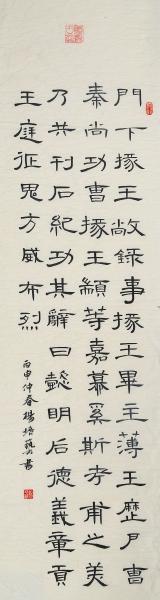 門下掾王敞錄事掾王畢主薄王歷戶曹
秦尚功曹掾王顓等嘉慕奚斯考甫之美
乃共刊石紀功其辭曰懿明后德義章貢
王庭征鬼方威布烈
丙申仲春楊培藝書